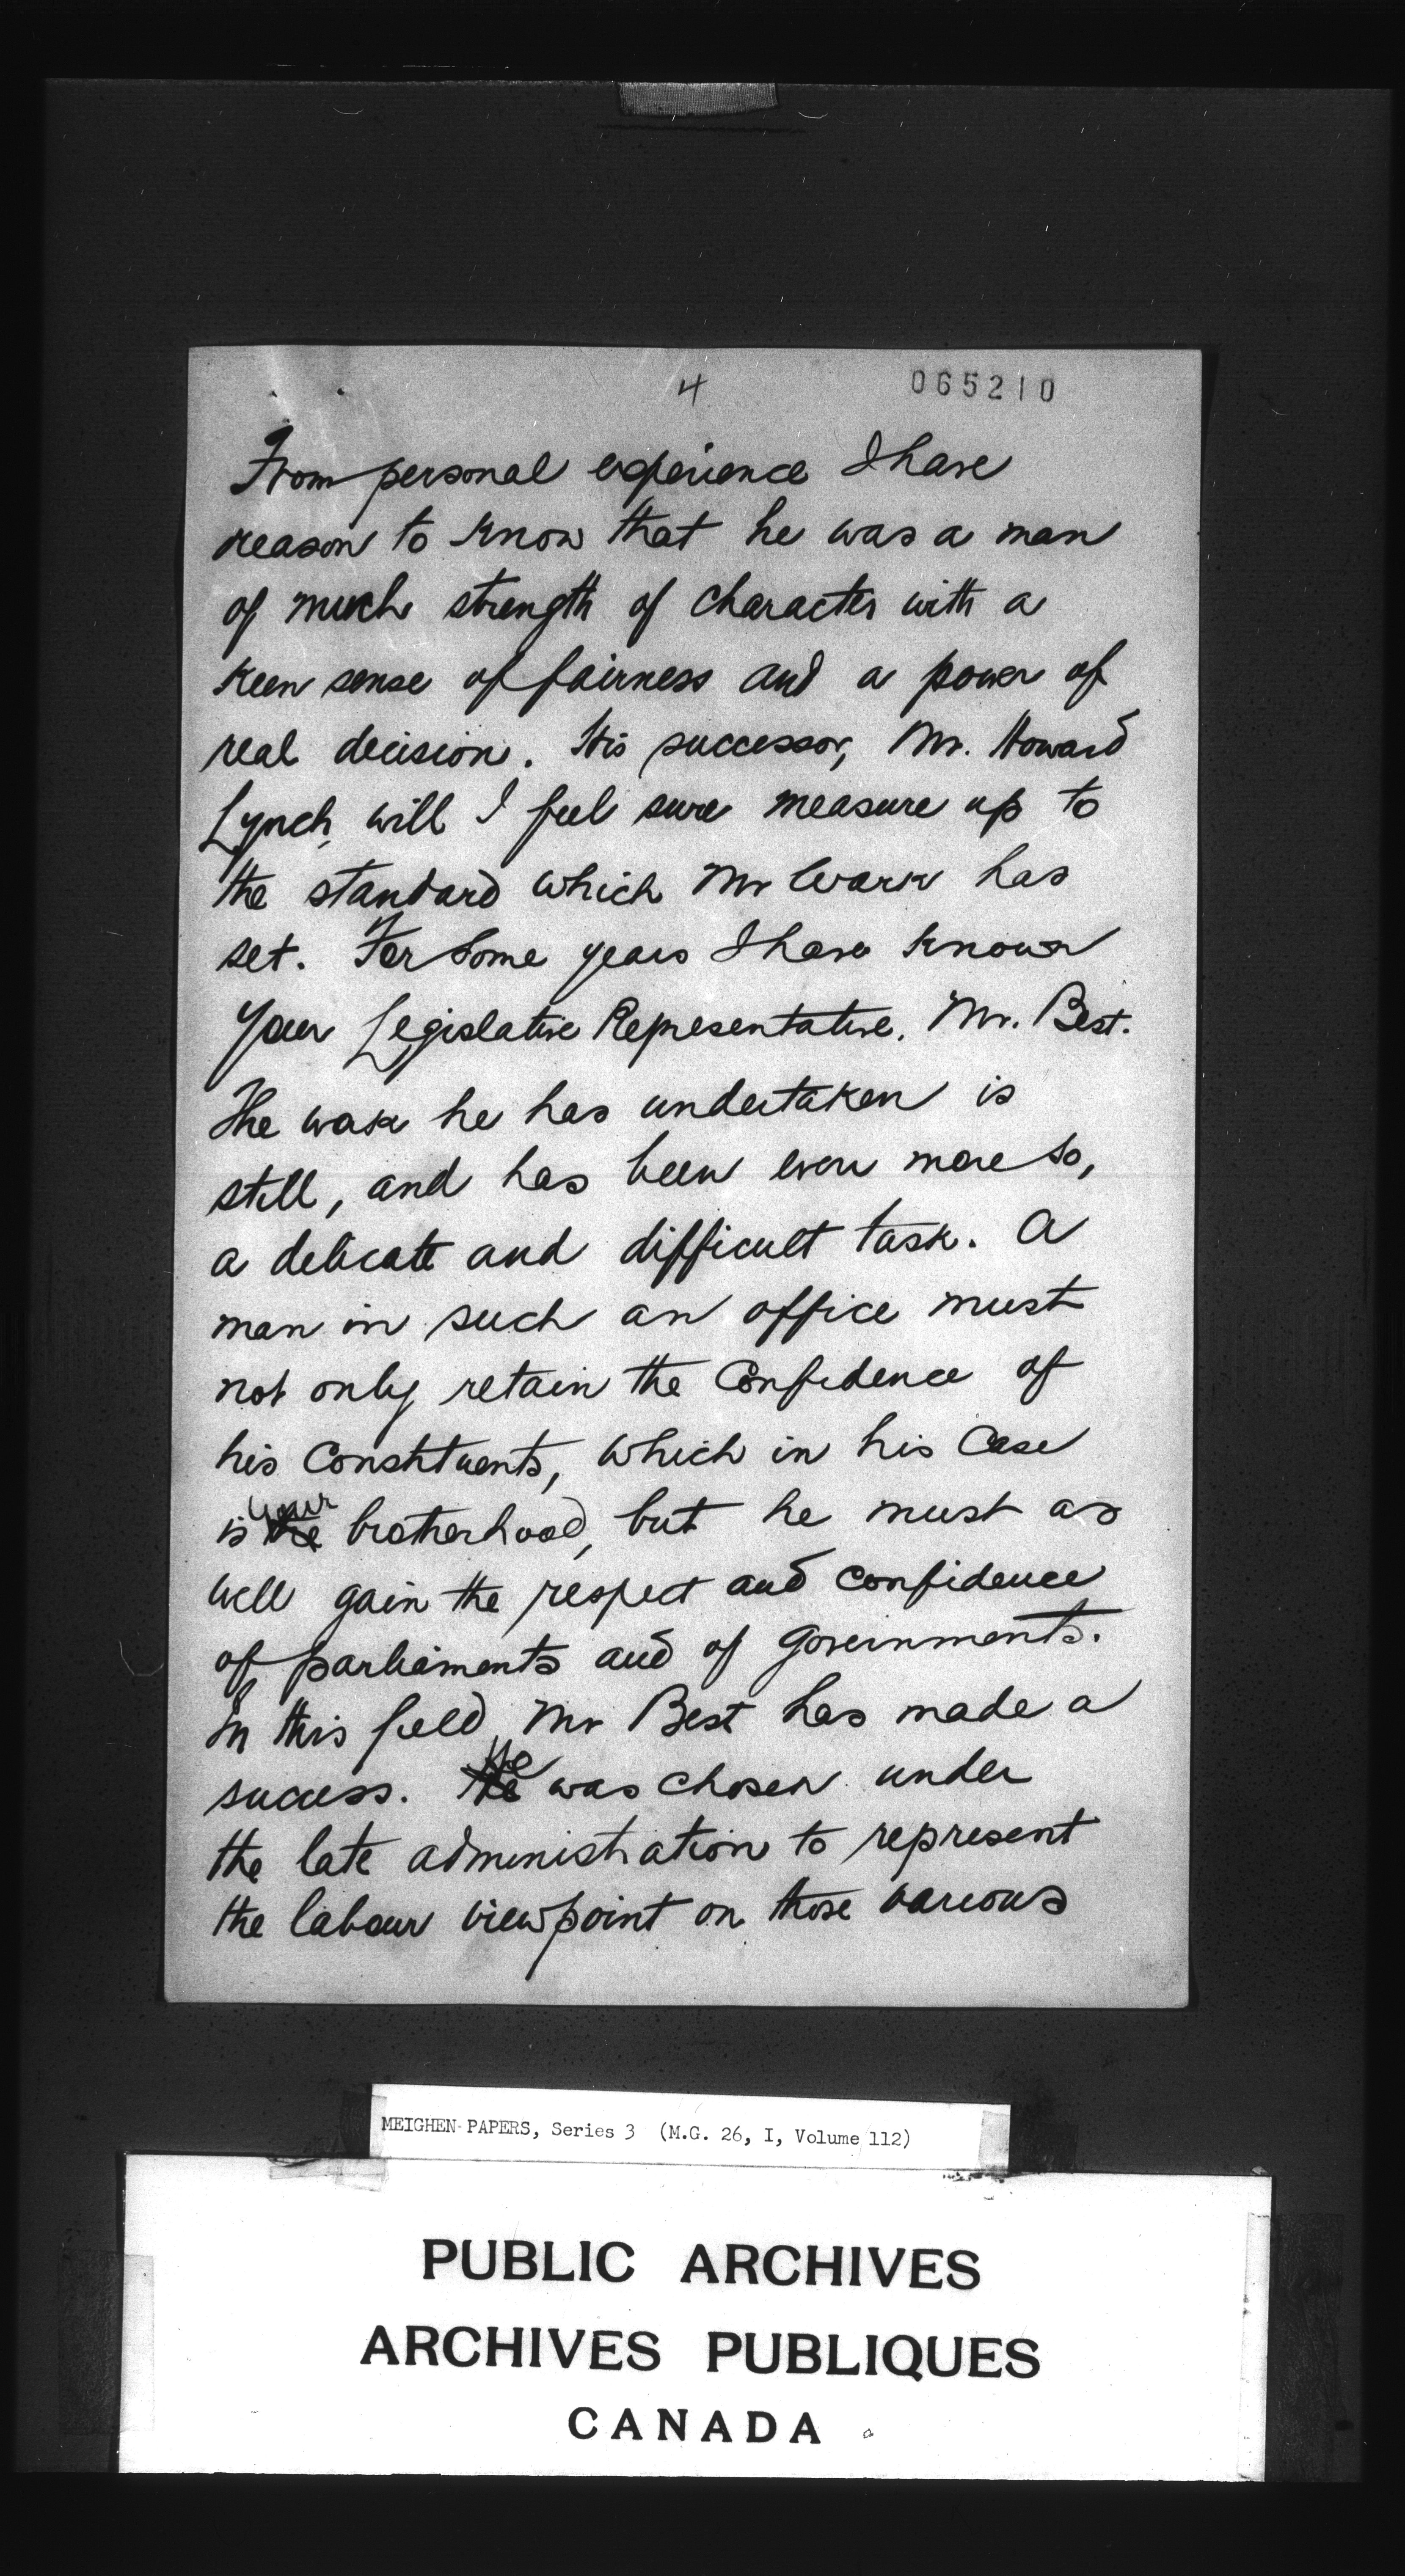 4
065210
From personal experience I have
reason to know that he was a man
of much strength of character with a
keen sense of fairness and a power of
real decision. His successor, Mr. Howard
Lynch, will I feel sure measure up to
the standard which Mr Wark has
set. For some years I have known
your Legislative Representative, Mr. Best.
The work he has undertaken is
still, and has been even more so,
a delicate and difficult task. A
man in such an office must
not only retain the confidence of
his constituents, which in his case
is the your brotherhood, but he must as
well gain the respect and confidence
of parliaments and of governments.
In this field Mr Best has made a
success. He was chosen under
the late administration to represent
the labour viewpoint on those various
MEIGHEN PAPERS, Series 3 (M.G. 26, I, Volume 112)
PUBLIC ARCHIVES
ARCHIVES PUBLIQUES
CANADA